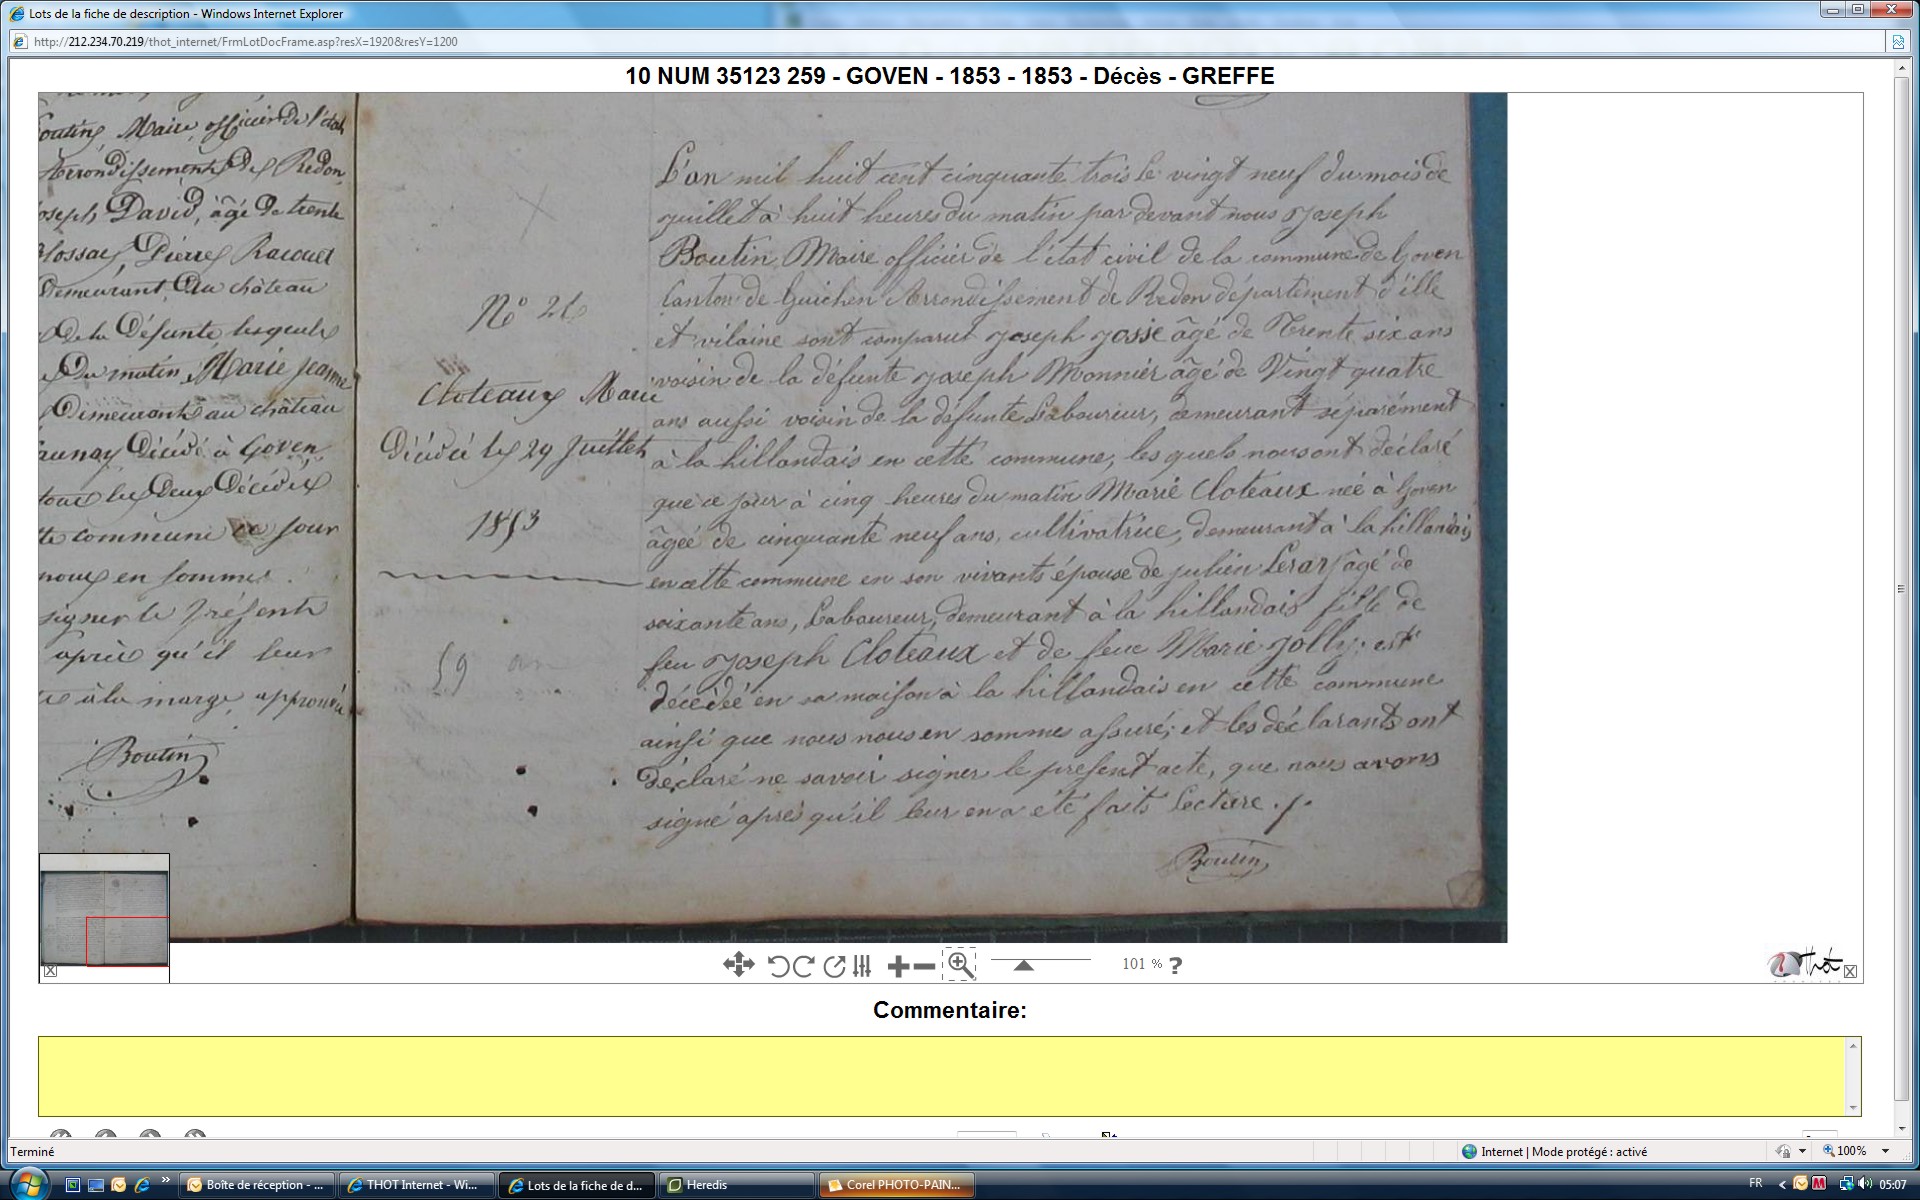 Lots de la fiche de description - Windows Internet Explorer
http://212.234.70.219/thot_internet/FrmLotDocFrame.asp?resX=1920&resY=1200
10 NUM 35123 259 - GOVEN - 1853 - 1853 - Décès - GREFFE
Boutin, Maire, officier de l'état
Arrondissement de Redon,
Joseph David, âgé de trente
Pierre Racouet
Demeurant Au château
De la Défunte lesquels
Du matin, Marie Jeanne
Demeurant au château
Décédé à Goven
tous les Deux Décédés
commune ce jour
nous en sommes
signer le présent
après qu'il leur
à la marge approuvé
Boutin
N° 26
Cloteaux Marie
Décédée le 29 Juillet
1853
59 an
L'an mil huit cent cinquante trois le vingt neuf du mois de
juillet à huit heures du matin par devant nous Joseph
Boutin Maire officier de l'état civil de la commune de Goven
Canton de Guichen Arrondissement de Redon département d'ille
et vilaine sont comparut Joseph Josse âgé de Trente six ans
voisin de la défunte Joseph Monnier âgé de Vingt quatre
ans aussi voisin de la défunte Laboureur, demeurant séparément
à la hillandais en cette commune, les quels nous ont déclaré
que ce jour à cinq heures du matin Marie Cloteaux née à Goven
âgée de cinquante neuf ans, cultivatrice, demeurant à la hillandais
en cette commune en son vivants épouse de julien Leray âgé de
soixante ans, Laboureur, demeurant à la hillandais fille de
feu Joseph Cloteaux et de feue Marie Jolly; est
décédée en sa maison à la hillandais en cette commune
ainsi que nous nous en sommes assuré; et les déclarants ont
Déclaré ne savoir signer le présent acte, que nous avons
signé après qu'il leur en a été faits Lecture ./.
Boutin
101 % ?
Thot
Commentaire:
Terminé
Internet | Mode protégé : activé
100%
Boîte de réception - ...
THOT Internet - Wi...
Lots de la fiche de d...
Heredis
Corel PHOTO-PAIN...
FR
05:07